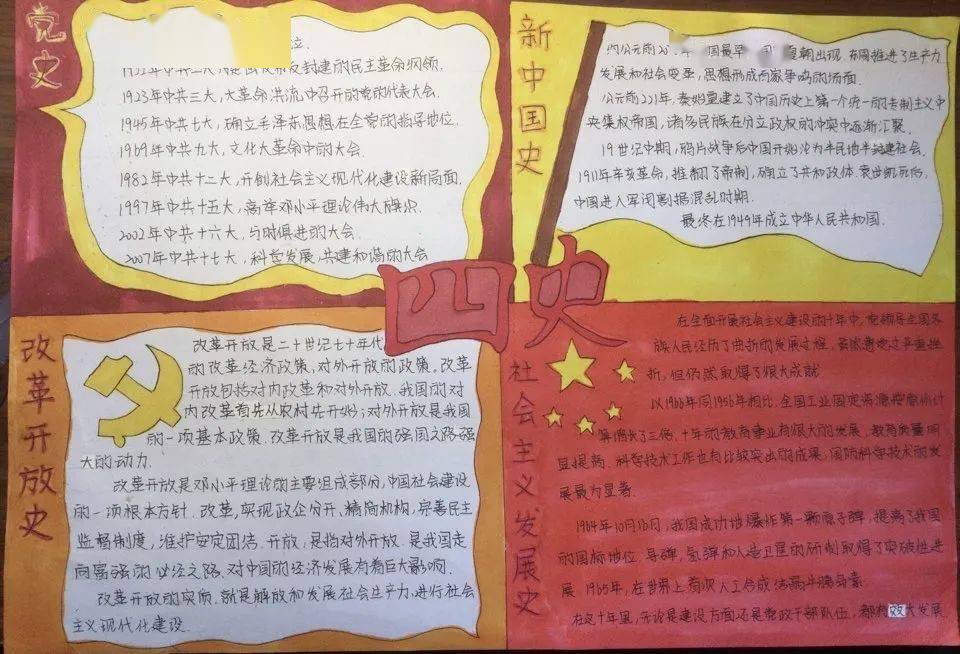 四史
党史
位.
1923年中共三大,大革命洪流中召开的党的代表大会.
1945年中共七大,确立毛泽东思想在全党的指导地位.
1969年中共九大,文化大革命中的大会.
1982年中共十二大,开创社会主义现代化建设新局面.
1997年中共十五大,高举邓小平理论伟大旗识.
2002年中共十六大,与时俱进的大会.
2007年中共十七大,科学发展,共建和谐的大会
新中国史
约公元前 国最早 朝出现,布周推进了生产力
发展和社会变革,思想形成百家争鸣的场面.
公元前221年.秦始皇建立了中国历史上第一个统一的专制主义中
央集权帝国,诸多民族在分立政权的冲突中逐渐汇聚.
19世纪中期,鸦片战争后中国开始沦为半民地半封建社会.
1911年辛亥革命,推翻了帝制,确立了共和政体.袁世凯死后,
中国进入军阀割据混乱时期.
最终在1949年成立中华人民共和国.
改革开放史
改革开放是二十世纪七十年代
的改革经济政策,对外开放的政策。改革
开放包括对内改革和对外开放.我国的对
内改革首先从农村先开始;对外开放是我国
的一项基本政策.改革开放是我国的强国之路强
大的动力.
改革开放是邓小平理论的主要组成部份,中国社会建设
的一项根本方针.改革,实现政企分开、精简机构,完善民主
监督制度,维护安定团结.开放,是指对外开放.是我国走
向富强的必经之路.对中国的经济发展有着巨大影响.
改革开放的实质,就是解放和发展社会生产力,进行社会
主义现代化建设.
社会主义发展史
在全面开展社会主义建设的十年中,党领导全国各
族人民经历了曲折的发展过程,虽然遭受过严重挫
折,但仍然取得了很大成就
以1966年同1956年相比.全国工业固定资源按原价计
算增长了三倍.十年的教育事业有很大的发展.教育质量明
显提高.科学技术工作也有比较突出的成果,国防科学技术的发
展最为显著.
1964年10月16日,我国成功地爆炸第一颗原子弹,提高了我国
的国际地位.导弹,氢弹和人造卫星的研制取得了突破性进
展.1965年,在世界上首次人工合成结晶牛胰岛素.
在这十年里,无论是建设方面还是党政干部队伍,都有效大发展